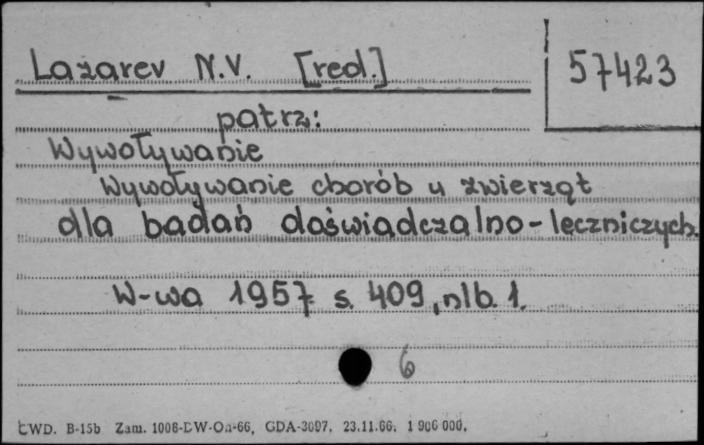 Lazarev N.V. [red.]
57423
patrz:
Wywoływanie
Wywoływanie chorób u zwierząt
dla badań doświadczalno-leczniczych.
W-wa 1957 s. 409, nlb. 1.
6
CWD. B-15b Zam. 1008-DW-On-66, GDA-3097. 23.11.66. 1 906 000.